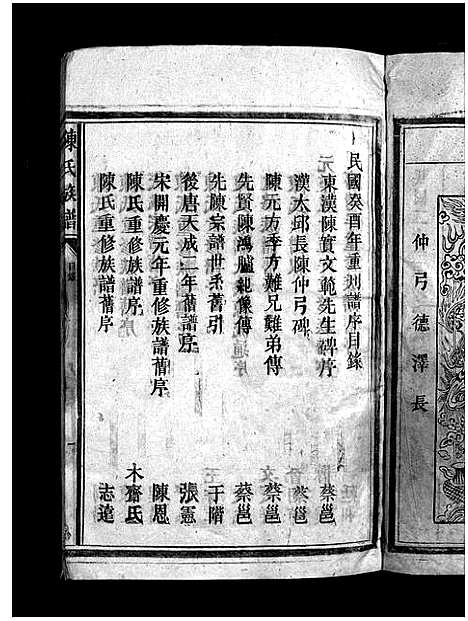 仲弓德澤長
民國癸酉年重刋譜序目錄
東漢陳寔文範先生碑序 蔡邕
漢太邱長陳仲弓碑 蔡邕
陳元方季方難兄難弟傳 蔡邕
先賢陳鴻臚紀像傳 蔡邕
先陳宗譜世系舊引 于階
後唐天成二年舊譜序 張憲
宋開慶元年重修族譜舊序 陳恩
陳氏重修族譜序 木齋氏
陳氏重修族譜舊序 志遠
陳氏族譜